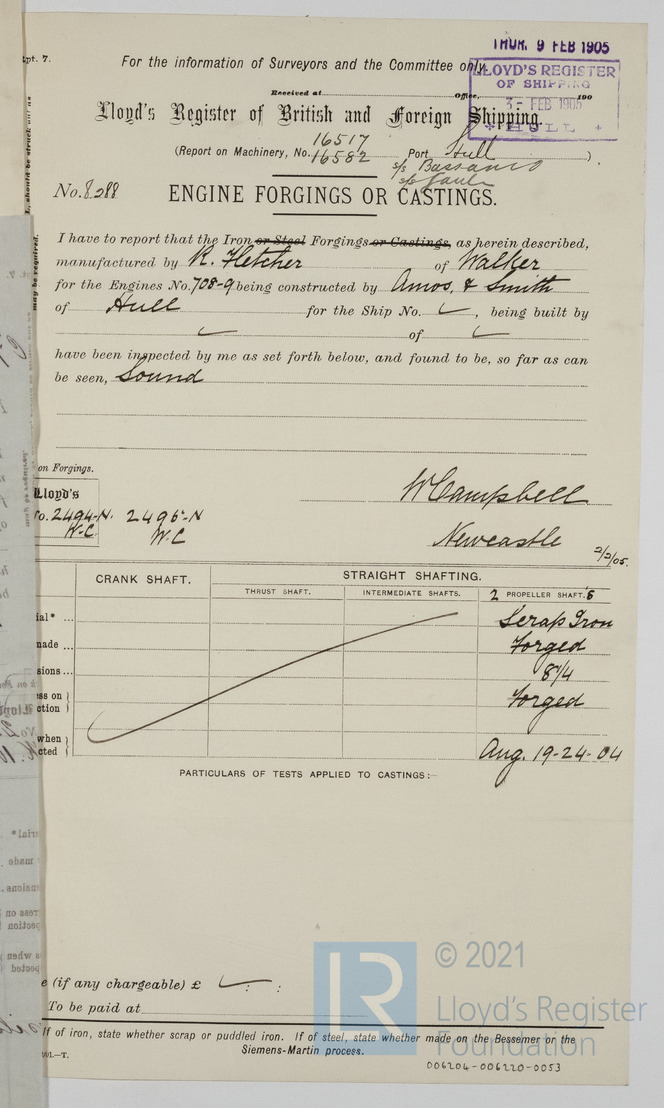 THUR. 9 FEB 1905
Rpt. 7.
For the information of Surveyors and the Committee only.
LLOYD'S REGISTER
OF SHIPPING
3- FEB 1905
HULL
Received at Office, 190
Lloyd's Register of British and Foreign Shipping.
16517
(Report on Machinery, No. 16582 Port Hull )
s/s Bassano
s/s
No. 8288 ENGINE FORGINGS OR CASTINGS.
I have to report that the Iron or Steel Forgings or Castings, as herein described,
manufactured by R. Fletcher of Walker
for the Engines No. 708-9 being constructed by Amos, & Smith
of Hull for the Ship No. , being built by
of
have been inspected by me as set forth below, and found to be, so far as can
be seen, Sound
on Forgings.
Lloyd's
No. 2494-N. 2495-N
W.C W.C
W Campbell
Newcastle 2/2/05.
CRANK SHAFT. STRAIGHT SHAFTING.
THRUST SHAFT. INTERMEDIATE SHAFTS. 2 PROPELLER SHAFT.S
ial* ... Scrap Iron
made ... Forged
sions ... 8 3/4
ss on
ction Forged
when
cted Aug. 19-24-04
PARTICULARS OF TESTS APPLIED TO CASTINGS:—
e (if any chargeable) £ : :
To be paid at
If of iron, state whether scrap or puddled iron. If of steel, state whether made on the Bessemer or the
Siemens-Martin process.
© 2021
Lloyd's Register
Foundation
LR
006204-006220-0053